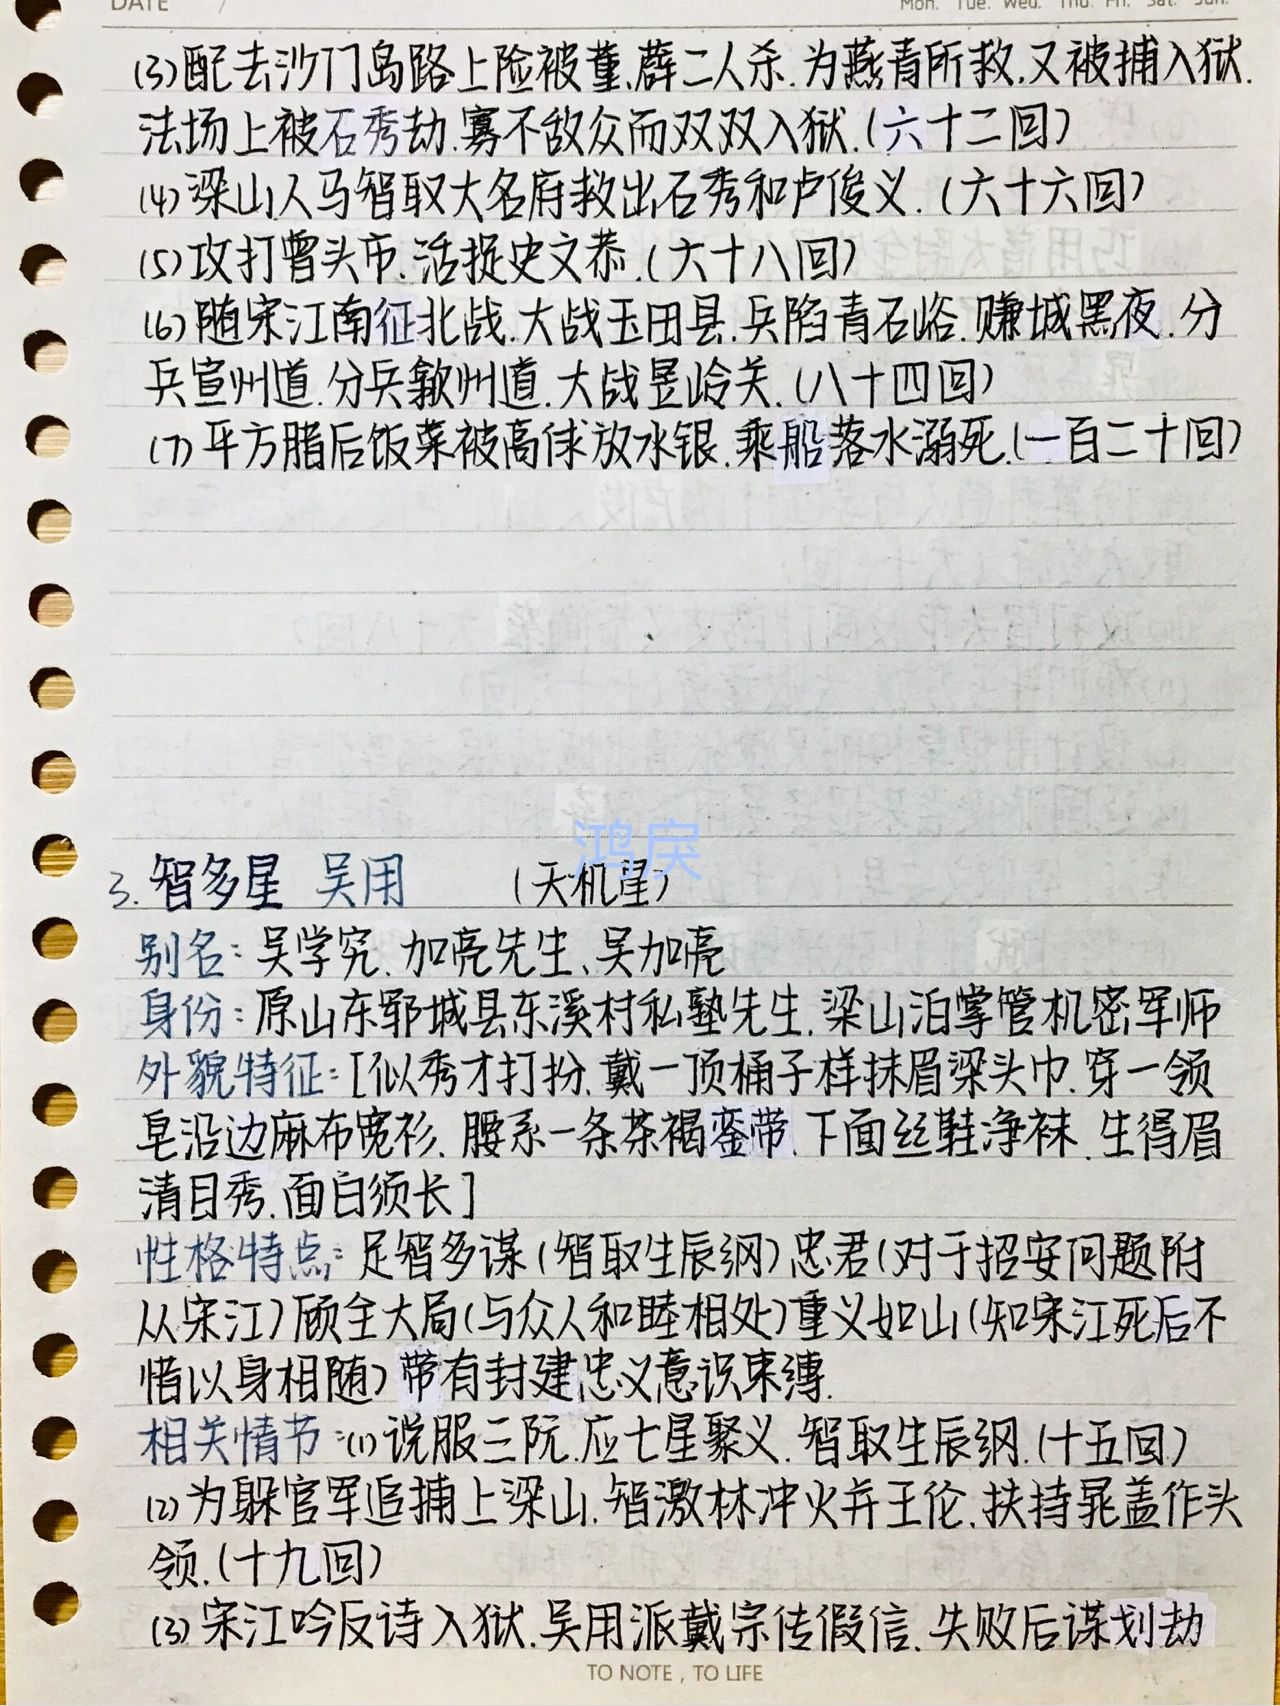 DATE /
Mon. Tue. Wed. Thu. Fri. Sat. Sun.
(3)配去沙门岛路上险被董、薛二人杀.为燕青所救.又被捕入狱.
法场上被石秀劫.寡不敌众而双双入狱.(六十二回)
(4)梁山人马智取大名府救出石秀和卢俊义.(六十六回)
(5)攻打曾头市.活捉史文恭.(六十八回)
(6)随宋江南征北战.大战玉田县.兵陷青石峪.赚城黑夜.分
兵宣州道.分兵歙州道.大战昱岭关.(八十四回)
(7)平方腊后饭菜被高俅放水银.乘船落水溺死.(一百二十回)
鸿戾
3.智多星 吴用 (天机星)
别名:吴学究、加亮先生、吴加亮
身份:原山东郓城县东溪村私塾先生.梁山泊掌管机密军师
外貌特征:[似秀才打扮.戴一顶桶子样抹眉梁头巾.穿一领
皂沿边麻布宽衫.腰系一条茶褐銮带.下面丝鞋净袜.生得眉
清目秀.面白须长]
性格特点:足智多谋(智取生辰纲)忠君(对于招安问题附
从宋江)顾全大局(与众人和睦相处)重义如山(知宋江死后不
惜以身相随)带有封建忠义意识束缚.
相关情节:(1)说服三阮.应七星聚义.智取生辰纲.(十五回)
(2)为躲官军追捕上梁山.智激林冲火并王伦.扶持晁盖作头
领.(十九回)
(3)宋江吟反诗入狱.吴用派戴宗传假信.失败后谋划劫
TO NOTE , TO LIFE